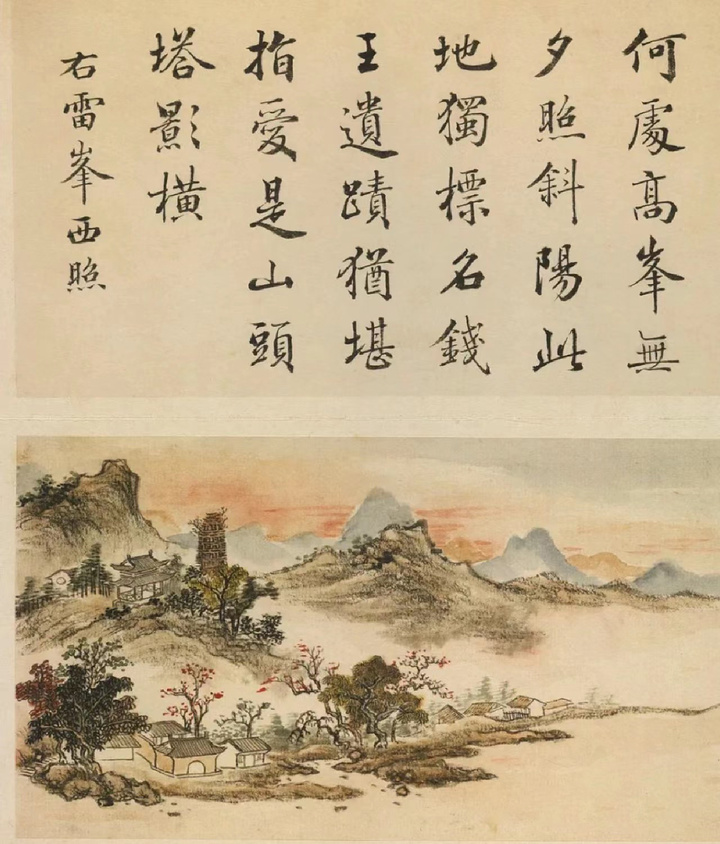 何處高峯無
夕照斜陽此
地獨標名錢
王遺蹟猶堪
指愛是山頭
塔影橫
右雷峯西照